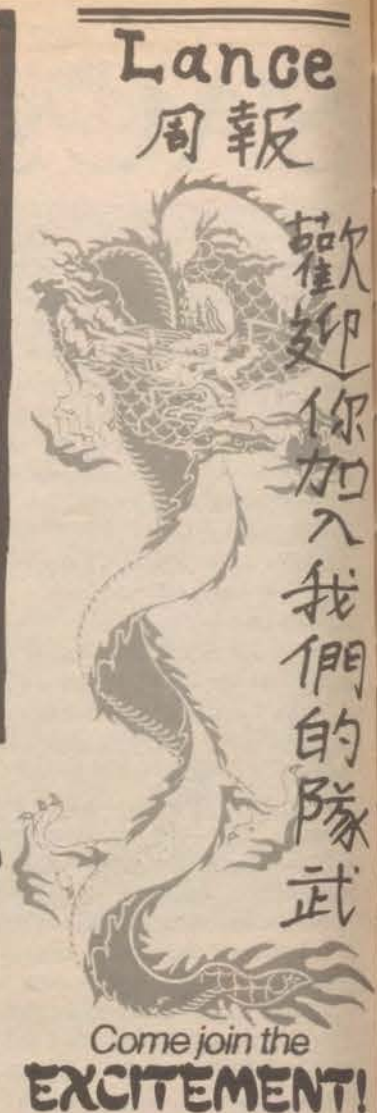 Lance
周報
歡迎你加入我們的隊武
Come join the
EXCITEMENT!